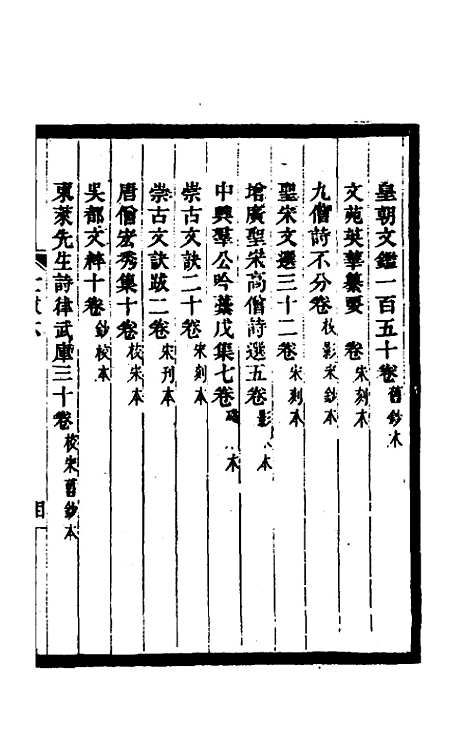 皇朝文鑑一百五十卷舊鈔本
文苑英華纂要　卷宋刻本
九僧詩不分卷校影宋鈔本
聖宋文選三十二卷宋刻本
增廣聖宋高僧詩選五卷影 本
中興羣公吟藁戊集七卷 本
崇古文訣二十卷宋刻本
崇古文訣跋二卷宋刊本
唐僧宏秀集十卷校宋本
吳都文粹十卷鈔校本
東萊先生詩律武庫三十卷校宋舊鈔本